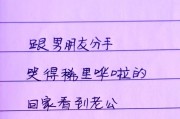 跟男朋友分手
哭得稀里哗啦的
回家看到老公